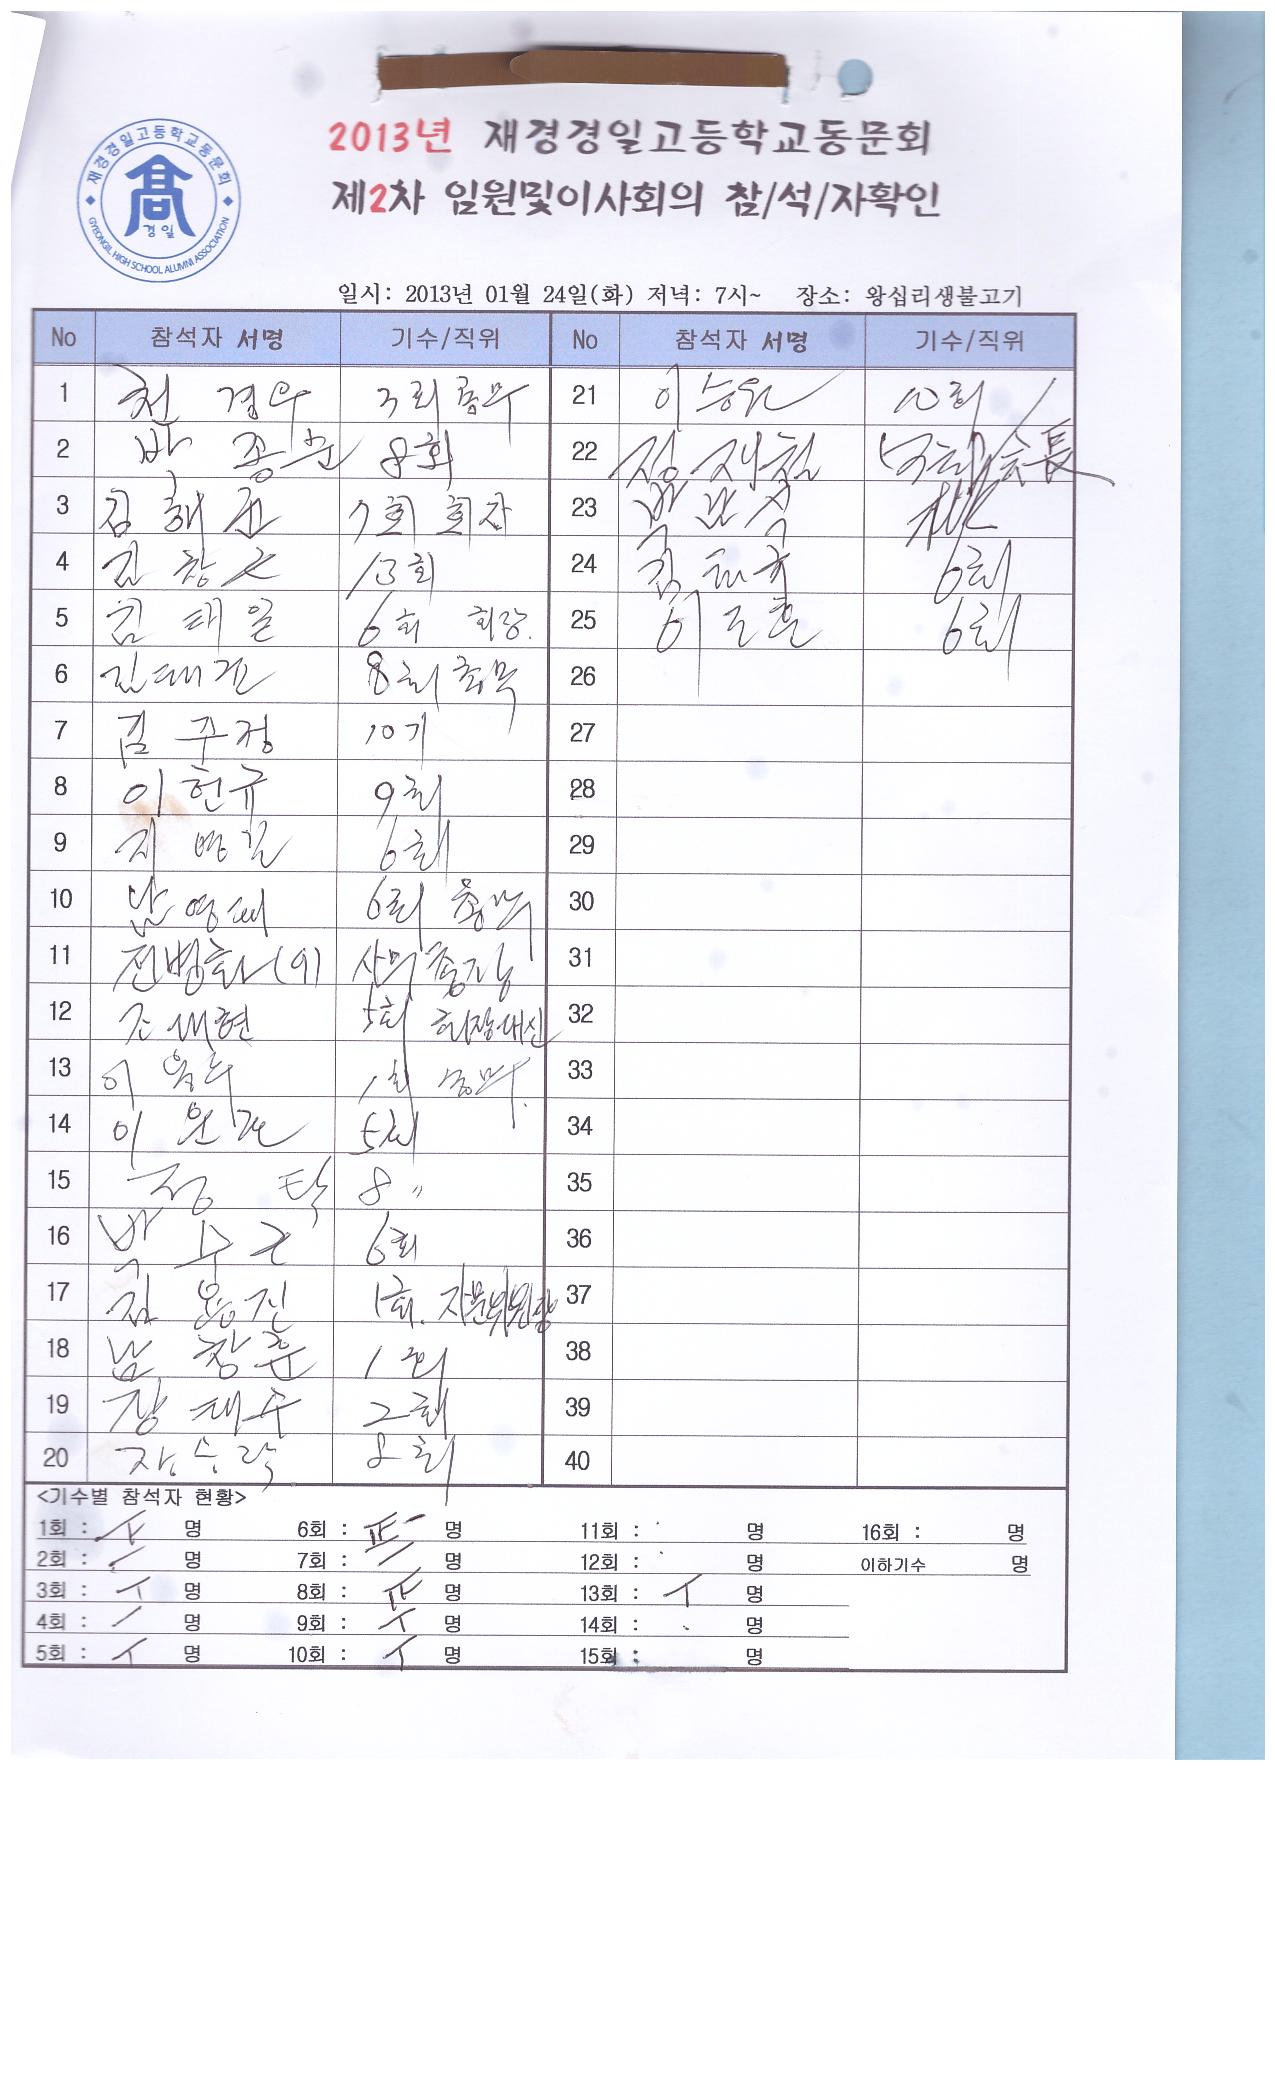 재경경일고등학교동문회
高
경일
GYEONGIL HIGH SCHOOL ALUMNI ASSOCIATION
2013년 재경경일고등학교동문회
제2차 임원및이사회의 참/석/자확인
일시: 2013년 01월 24일(화) 저녁: 7시~ 장소: 왕십리생불고기
No 참석자 서명 기수/직위 No 참석자 서명 기수/직위
1 천경우 3회 총무 21 이승원 10회
2 박종훈 8회 22 會長
3 김해권 7회 회장 23
4 김창근 13회 24 6회
5 김태일 6회 회장. 25 이 훈 6회
6 김대건 8회 총무 26
7 김주정 10기 27
8 이헌규 9회 28
9 지명길 6회 29
10 남영대 6회 총무 30
11 전병화 (9) 31
12 조대현 5회 회장대신 32
13 이용우 1회 총무. 33
14 이원근 5회 34
15 정탁 8 〃 35
16 박수근 6회 36
17 김용진 1회. 자문위원장 37
18 남창훈 1회 38
19 장태수 2회 39
20 장승락 8회 40
<기수별 참석자 현황>
1회 : 명 6회 : 正一 명 11회 : 명 16회 : 명
2회 : 명 7회 : 명 12회 : 명 이하기수 명
3회 : 명 8회 : 正 명 13회 : 명
4회 : 명 9회 : 명 14회 : 명
5회 : 명 10회 : 명 15회 : 명